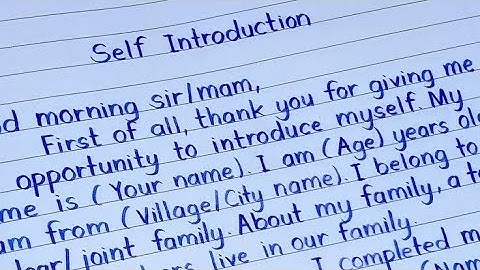 Self Introduction
morning sir/mam,
First of all, thank you for giving me
opportunity to introduce myself. My
is (Your name). I am (Age) years
from (Village/City name). I belong to
joint family. About my family, a
live in our family.
I completed